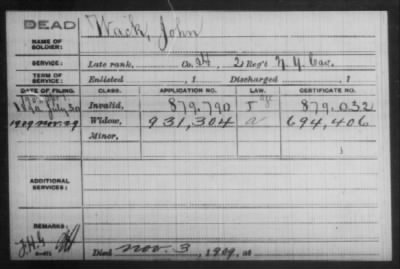 DEAD
Wack, John
NAME OF SOLDIER:
SERVICE: Late rank, Co. H, 2 Reg't N.Y. Cav.
TERM OF SERVICE: Enlisted , 1 Discharged , 1
DATE OF FILING. CLASS. APPLICATION NO. LAW. CERTIFICATE NO.
July 30 Invalid, 879.790 879.032
1909 Nov. 29 Widow, 931,304 a 694,406
Minor,
ADDITIONAL SERVICES:
REMARKS:
Died Nov. 3, 1909, at